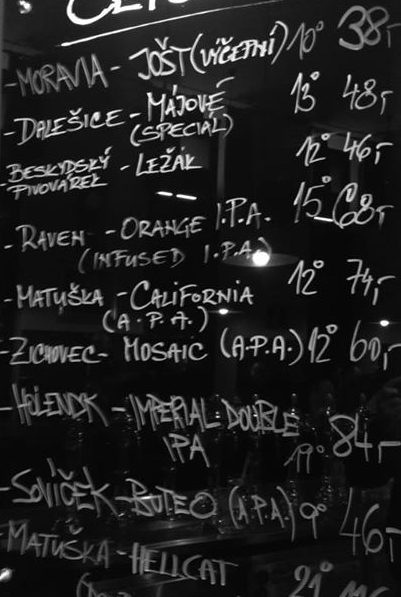 - MORAVIA - JOŠT (VÝČEPNÍ) 10° 38,-
- DALEŠICE - MÁJOVÉ 13° 48,-
(SPECIÁL)
- BESKYDSKÝ - LEŽÁK 12° 46,-
PIVOVÁREK
- RAVEN - ORANGE I.P.A. 15° 68,-
(INFUSED I.P.A.)
- MATUŠKA - CALIFORNIA 12° 74,-
(A.P.A.)
- ZICHOVEC - MOSAIC (A.P.A.) 12° 60,-
- HOLENDR - IMPERIAL DOUBLE
IPA 19° 84,-
- SOVIČEK - BUTEO (A.P.A.) 9° 46,-
- MATUŠKA - HELLCAT
21°